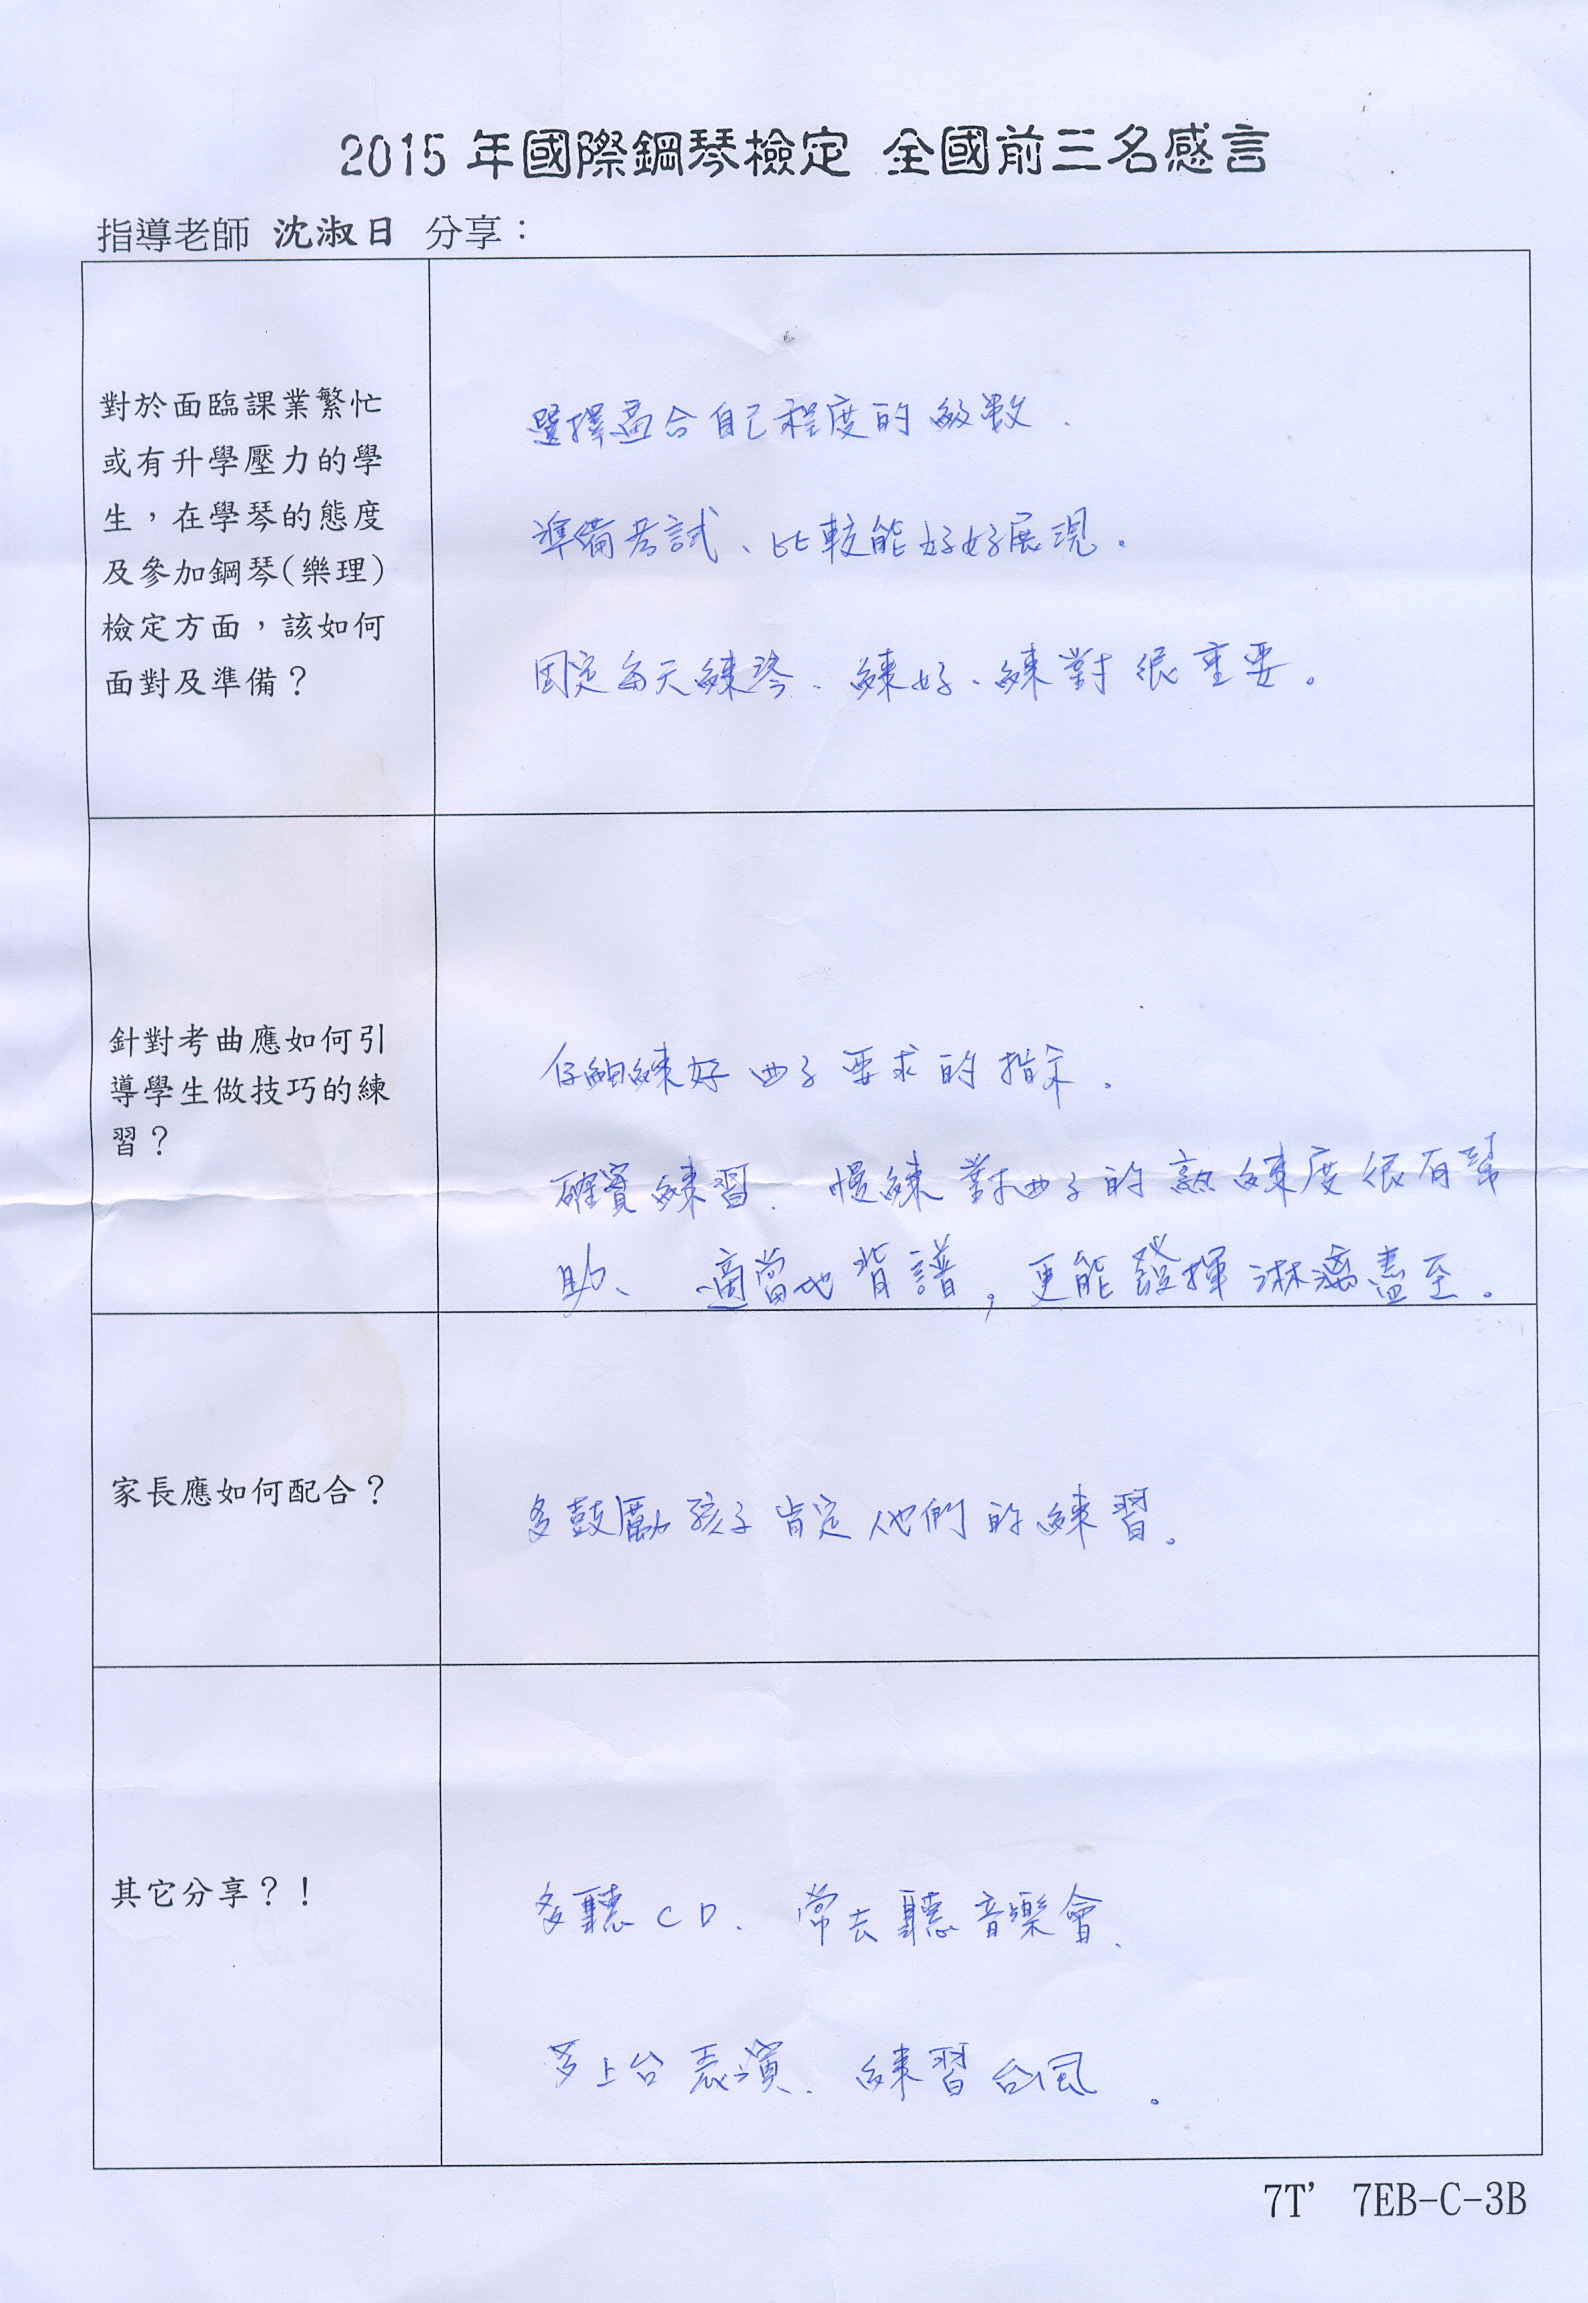 2015 年國際鋼琴檢定 全國前三名感言
指導老師 沈淑日 分享：
對於面臨課業繁忙
或有升學壓力的學
生，在學琴的態度
及參加鋼琴(樂理)
檢定方面，該如何
面對及準備？
選擇適合自己程度的級數、
準備考試、比較能好好展現。
固定每天練琴、練好、練對很重要。
針對考曲應如何引
導學生做技巧的練
習？
仔細練好曲子要求的指示、
確實練習、慢練對曲子的熟練度很有幫
助、適當地背譜，更能發揮淋漓盡至。
家長應如何配合？
多鼓勵孩子肯定他們的練習。
其它分享？！
多聽CD、常去聽音樂會、
多上台表演、練習台風。
7T' 7EB-C-3B